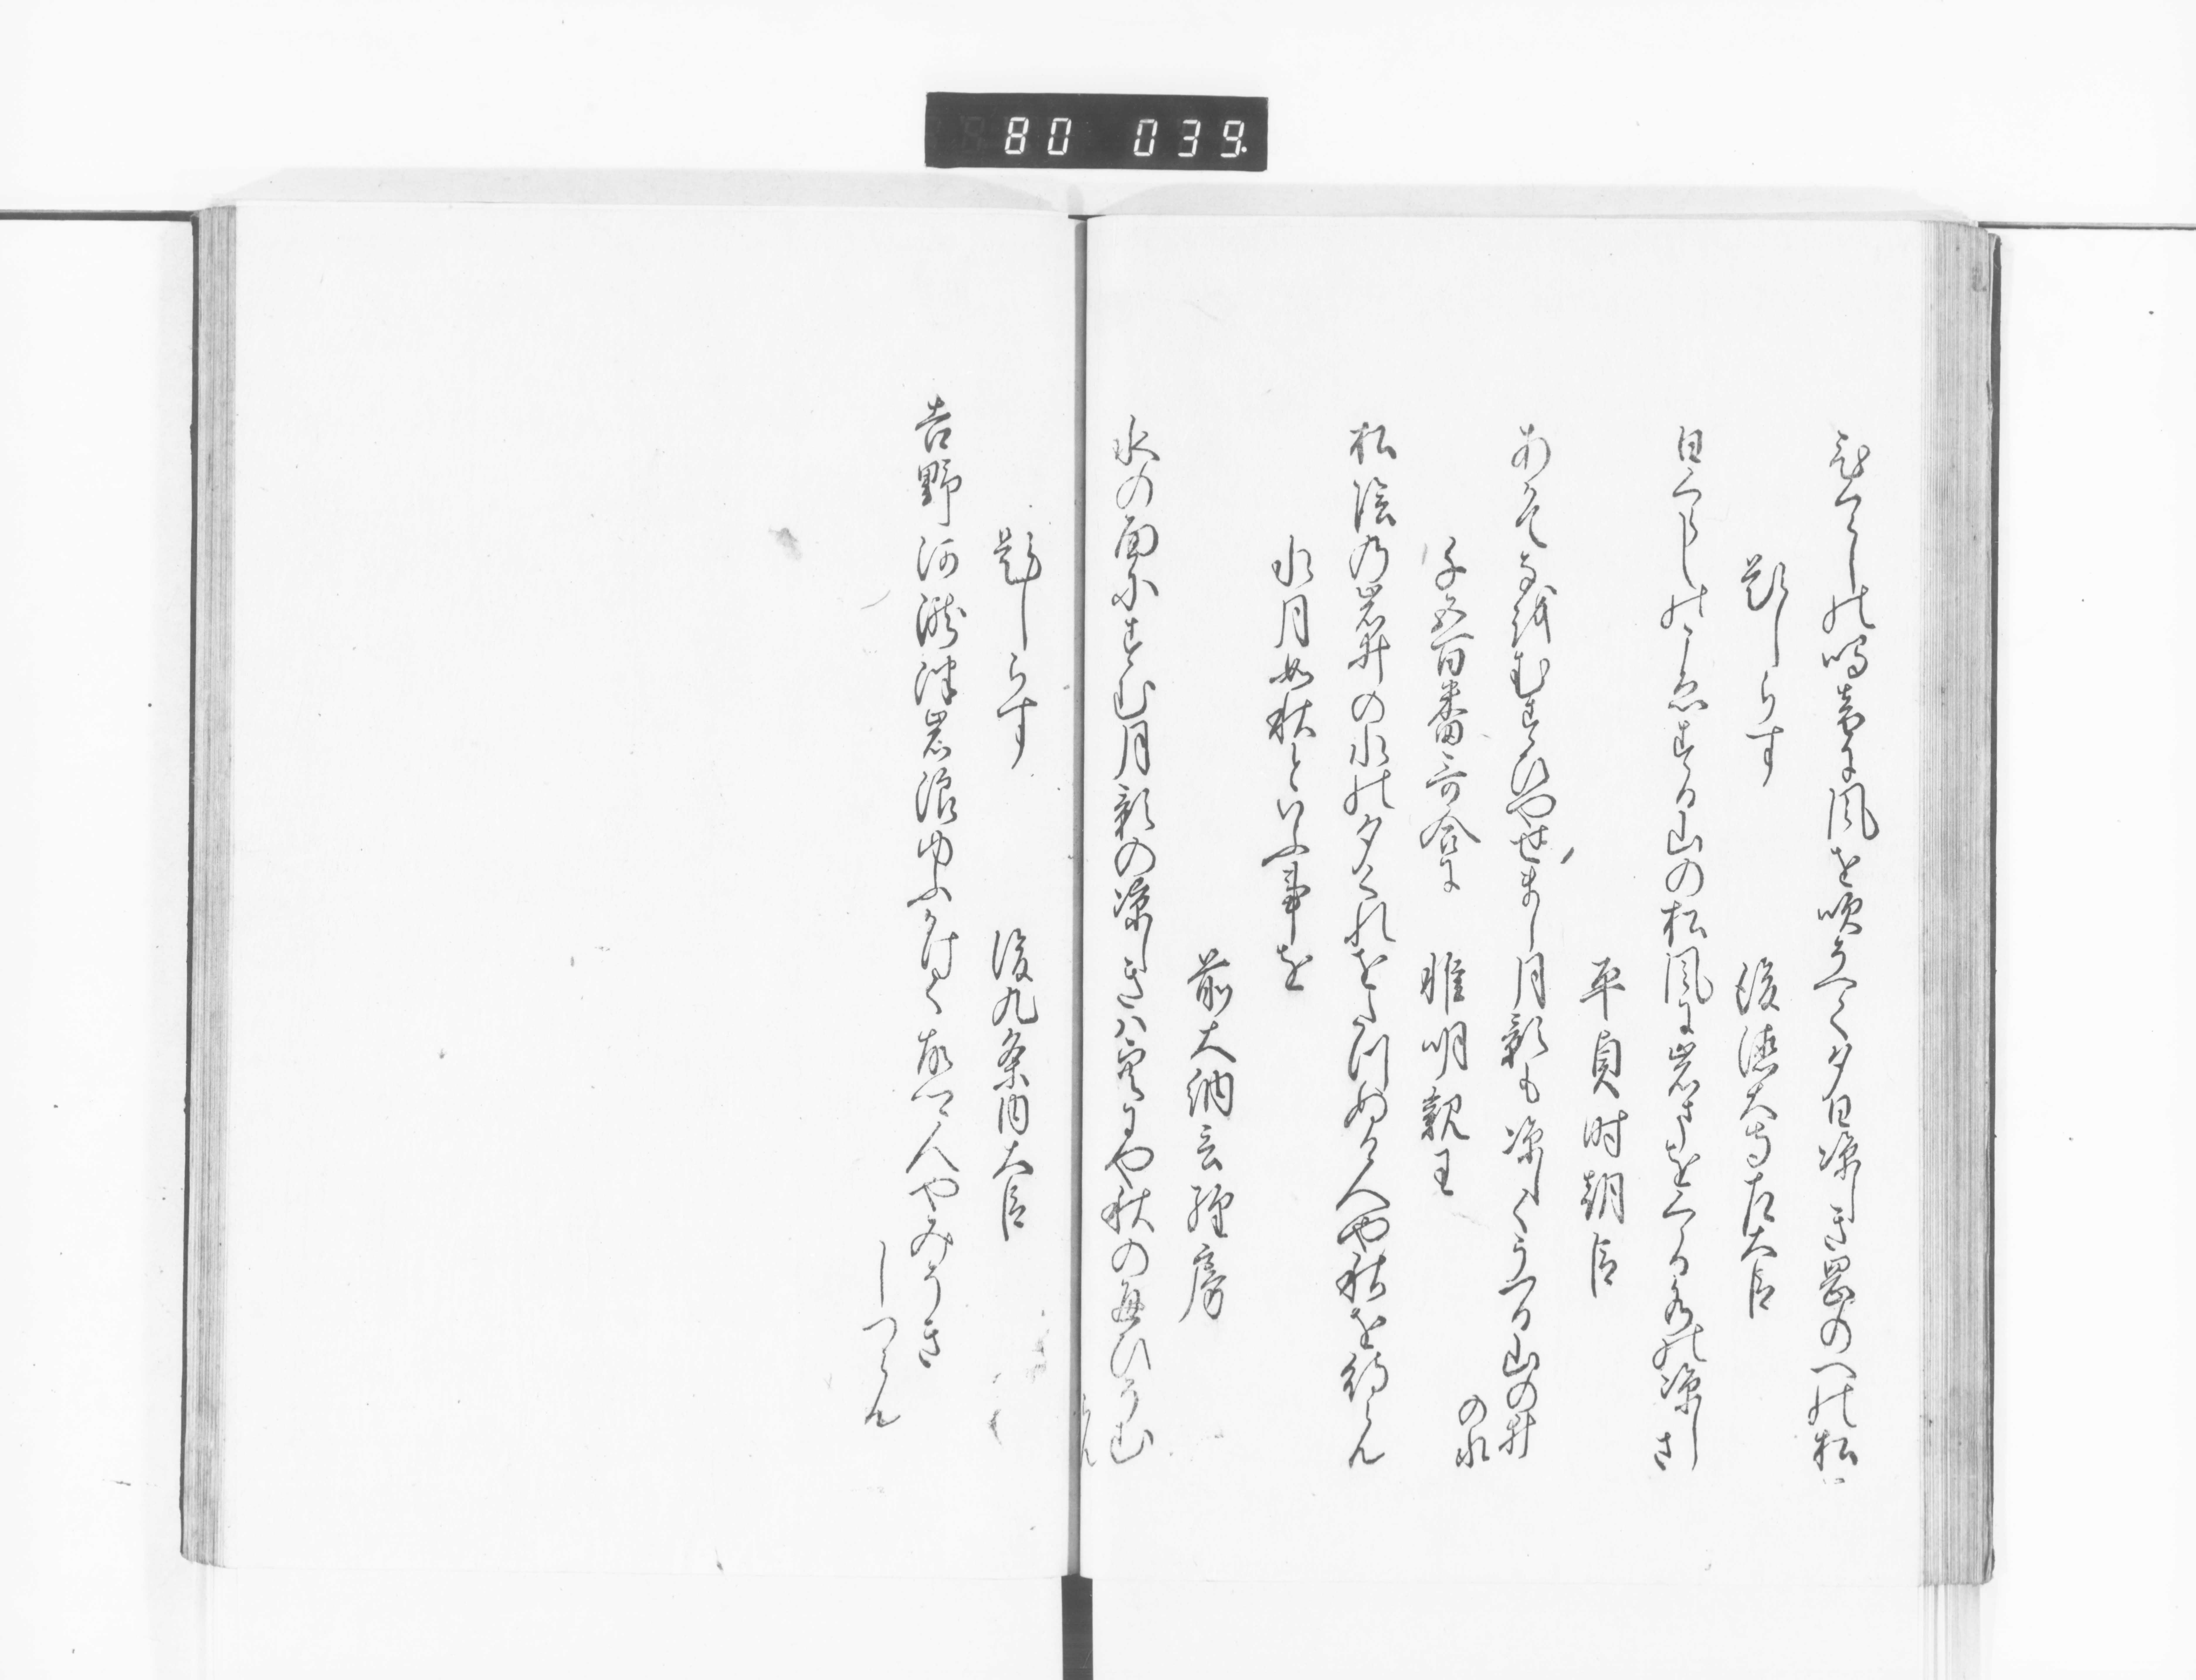 80 039
ひくらしの鳴音に風を吹そへて夕日涼しき岡のへの松
題しらす
後徳大寺左大臣
日くらしのこゑする山の松風に岩まをくくる水の涼しさ
平貞時朝臣
あかてなをむすひやせまし月影も涼しくうつる山の井
の水
千五百番哥合に
惟明親王
松陰の岩井の水の夕くれをたつぬる人や秋を待らん
水月如秋といふ事を
前大納言経房
水の面にすむ月影の涼しきは
題しらす
後九条内大臣
吉野河瀧津岩浪ゆふかけて故郷人やみそき
しつらん